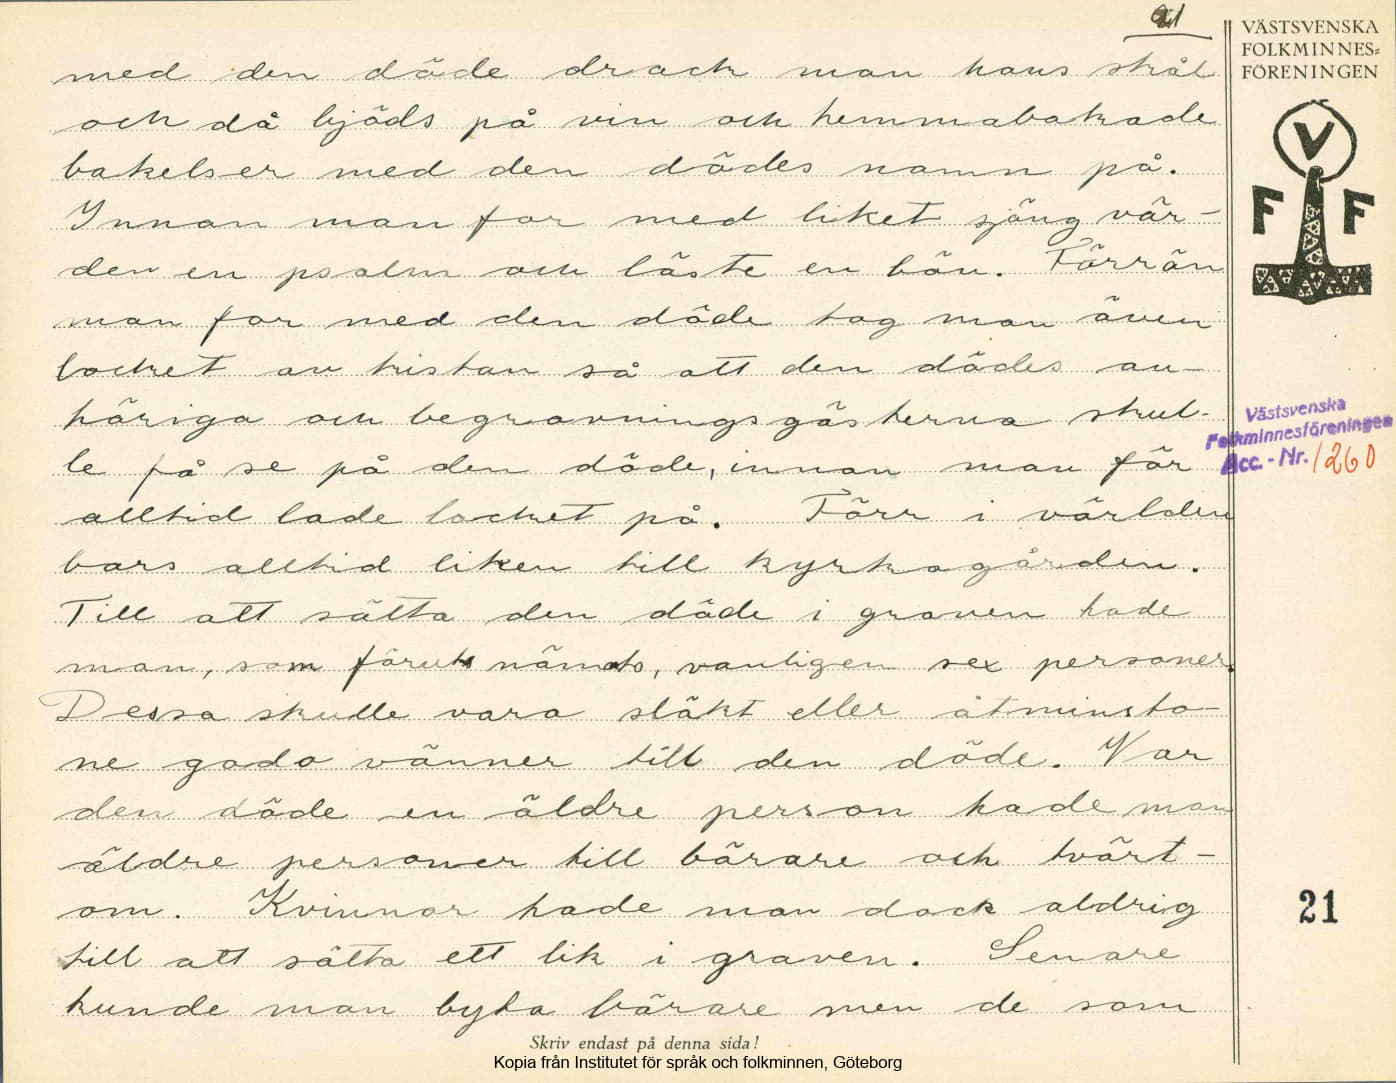 21
VÄSTSVENSKA
FOLKMINNES=
FÖRENINGEN
V
F F
med den döde drack man hans skål
och då bjöds på vin och hemmabakade
bakelser med den dödes namn på.
Innan man for med liket sjöng vär-
den en psalm och läste en bön. Förrän
man for med den döde tog man även
locket av kistan så att den dödes an-
höriga och begravningsgästerna skul-
le få se på den döde, innan man för
alltid lade locket på. Förr i världen
bars alltid liken till kyrkogården.
Till att sätta den döde i graven hade
man, som förut nämnts, vanligen sex personer.
Dessa skulle vara släkt eller åtminsto-
ne goda vänner till den döde. Var
den döde en äldre person hade man
äldre personer till bärare och tvärt-
om. Kvinnor hade man dock aldrig
till att sätta ett lik i graven. Senare
kunde man byta bärare men de som
Västsvenska
Folkminnesföreningen
Acc. - Nr. 1260
21
Skriv endast på denna sida!
Kopia från Institutet för språk och folkminnen, Göteborg